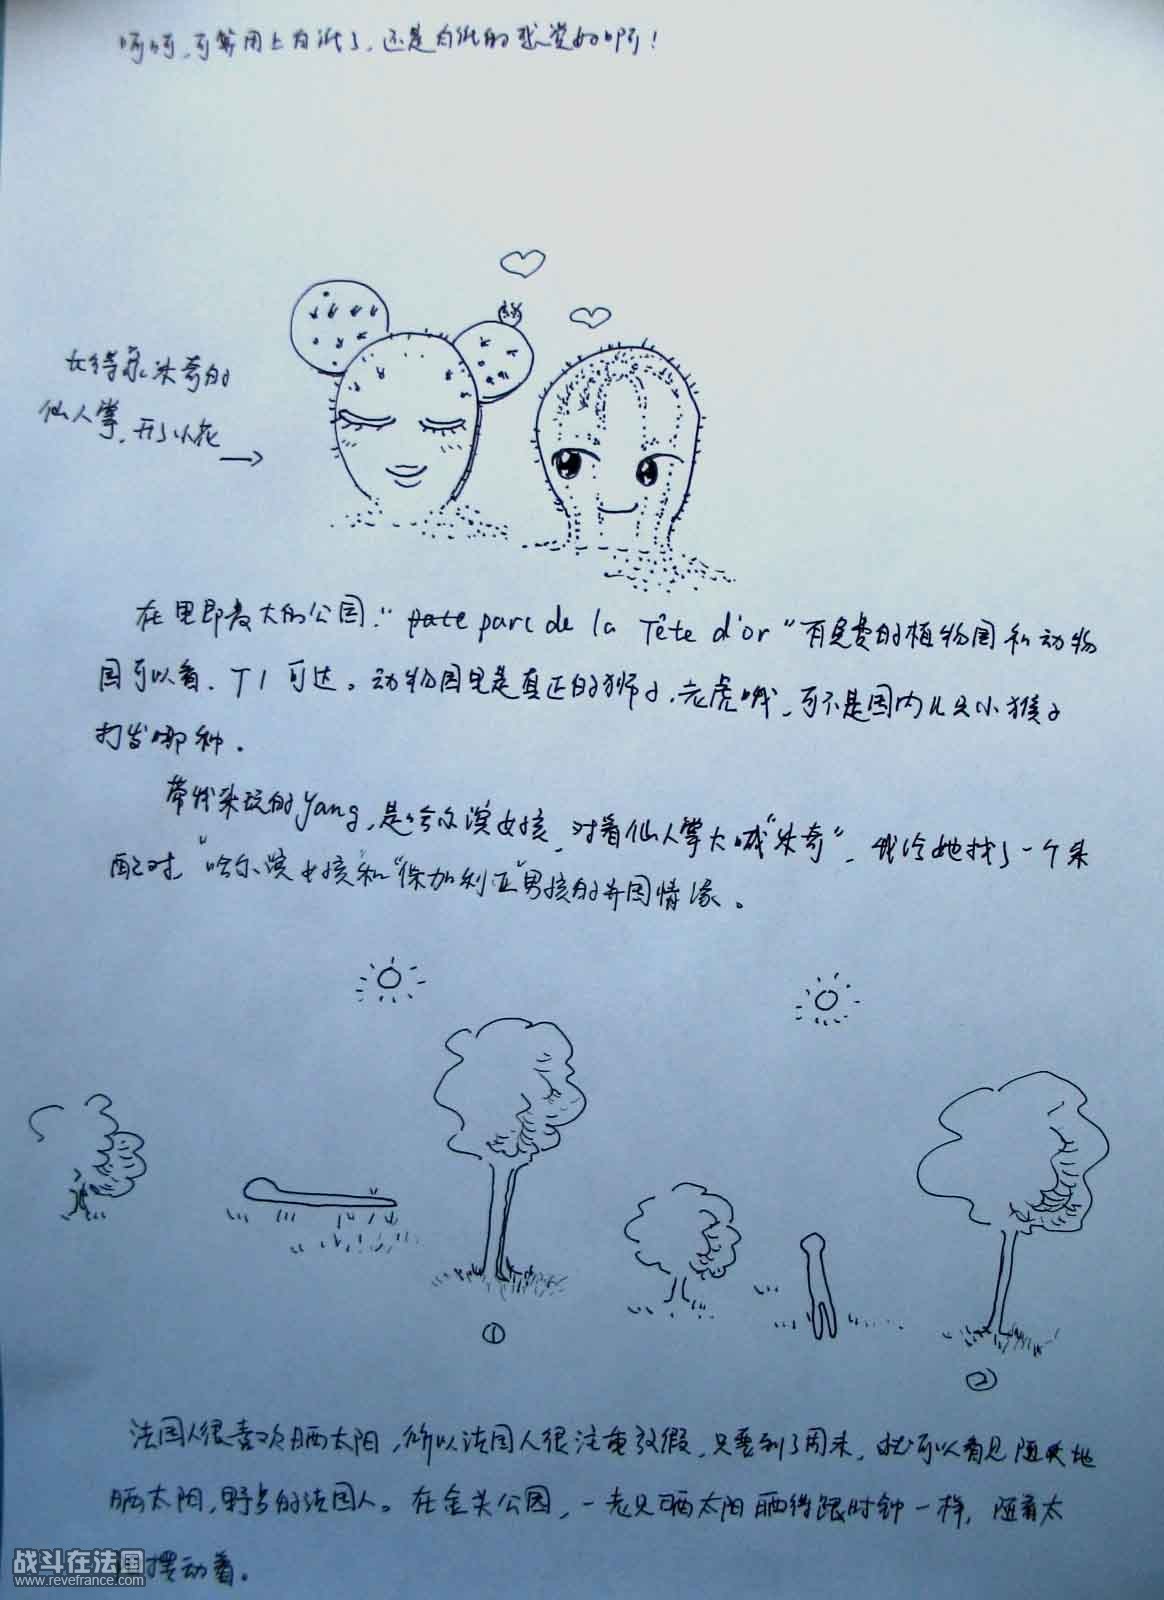 呵呵，可算用上白纸了，还是白纸的感觉好啊！
长得像米奇的
仙人掌，开了小花
在里昂最大的公园，"parc de la Tête d'or"有免费的植物园和动物
园可以看，T1可达。动物园里是真正的狮子，老虎哦，可不是国内几只小猴子
打发哪种。
带我来玩的Yang，是哈尔滨女孩，对着仙人掌大喊"米奇"，我给她找了一个来
配对，"哈尔滨女孩"和"保加利亚"男孩的异国情缘。
①
②
法国人很喜欢晒太阳，所以法国人很注重放假，只要到了周末，就可以看见随处地
晒太阳，野餐的法国人。在金头公园，一老兄晒太阳晒得跟时钟一样，随着太
摆动着。
战斗在法国
www.revefrance.com